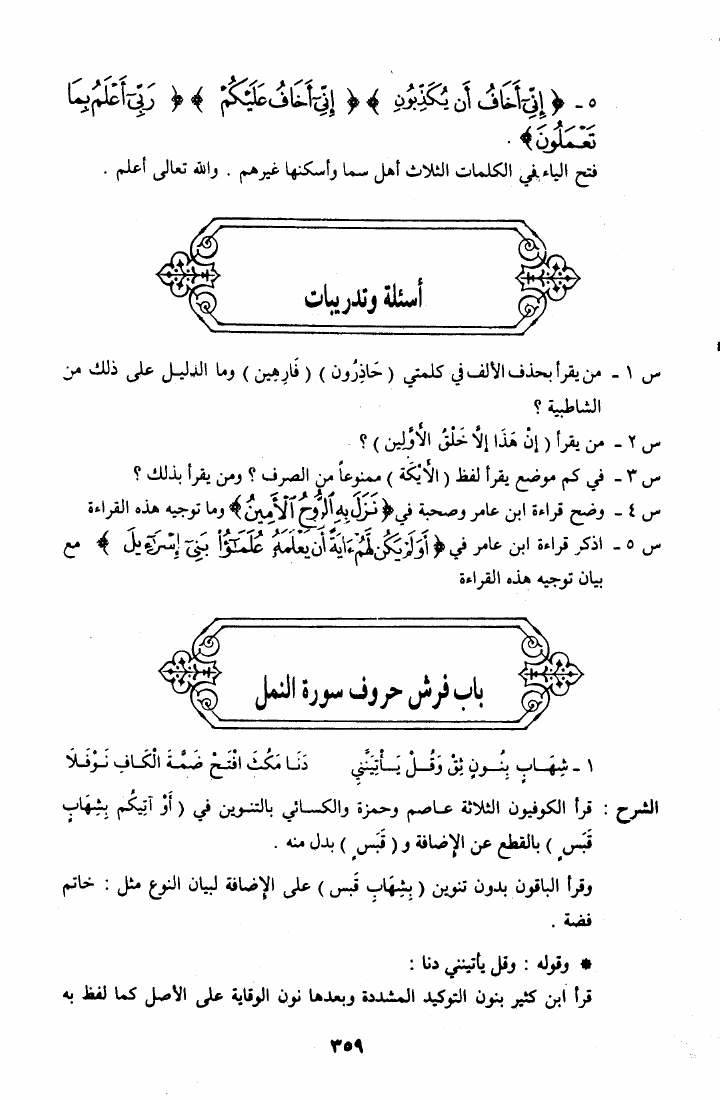 ٥ - ﴿ إِنِّىٓ أَخَافُ أَن يُكَذِّبُونِ ﴾ ﴿ إِنِّىٓ أَخَافُ عَلَيْكُمْ ﴾ ﴿ رَبِّىٓ أَعْلَمُ بِمَا
تَعْمَلُونَ ﴾ .
فتح الياء في الكلمات الثلاث أهل سما وأسكنها غيرهم . والله تعالى أعلم .
أسئلة وتدريبات
س ١ - من يقرأ بحذف الألف في كلمتي ( حَاذِرُون ) ( فَارِهِين ) وما الدليل على ذلك من
الشاطبية ؟
س ٢ - من يقرأ ( إنْ هَذَا إلَّا خَلْقُ الأَوَّلِين ) ؟
س ٣ - في كم موضع يقرأ لفظ ( الأَيْكَة ) ممنوعاً من الصرف ؟ ومن يقرأ بذلك ؟
س ٤ - وضح قراءة ابن عامر وصحبة في ﴿ نَزَلَ بِهِ ٱلرُّوحُ ٱلْأَمِينُ ﴾ وما توجيه هذه القراءة
س ٥ - اذكر قراءة ابن عامر في ﴿ أَوَلَمْ يَكُن لَّهُمْ ءَايَةً أَن يَعْلَمَهُۥ عُلَمَـٰٓؤُا۟ بَنِىٓ إِسْرَٰٓءِيلَ ﴾ مع
بيان توجيه هذه القراءة
باب فرش حروف سورة النمل
١ - شِهَابٍ بِنُونٍ ثِقْ وَقُلْ يَأْتِيَنَّنِي دَنَا مَكُثَ افْتَحْ ضَمَّةَ الْكَافِ نَوْفَلَا
الشرح : قرأ الكوفيون الثلاثة عاصم وحمزة والكسائي بالتنوين في ( أَوْ آتِيكُم بِشِهَابٍ
قَبَسٍ ) بالقطع عن الإضافة و ( قَبَسٍ ) بدل منه .
وقرأ الباقون بدون تنوين ( بِشِهَابِ قَبس ) على الإضافة لبيان النوع مثل : خاتم
فضة .
* وقوله : وقل يأتينني دنا :
قرأ ابن كثير بنون التوكيد المشددة وبعدها نون الوقاية على الأصل كما لفظ به
٣٥٩